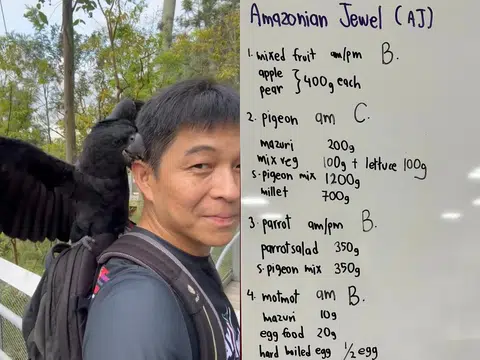 Amazonian Jewel (AJ)
1. mixed fruit am/pm B.
apple
pear } 400g each
2. pigeon am C.
mazuri 200g
mix veg 100g + lettuce 100g
s. pigeon mix 1200g
millet 700g
3. parrot am/pm B.
parrot salad 350g
s. pigeon mix 350g
4. motmot am B.
mazuri 10g
egg food 20g
hard boiled egg 1/2 egg